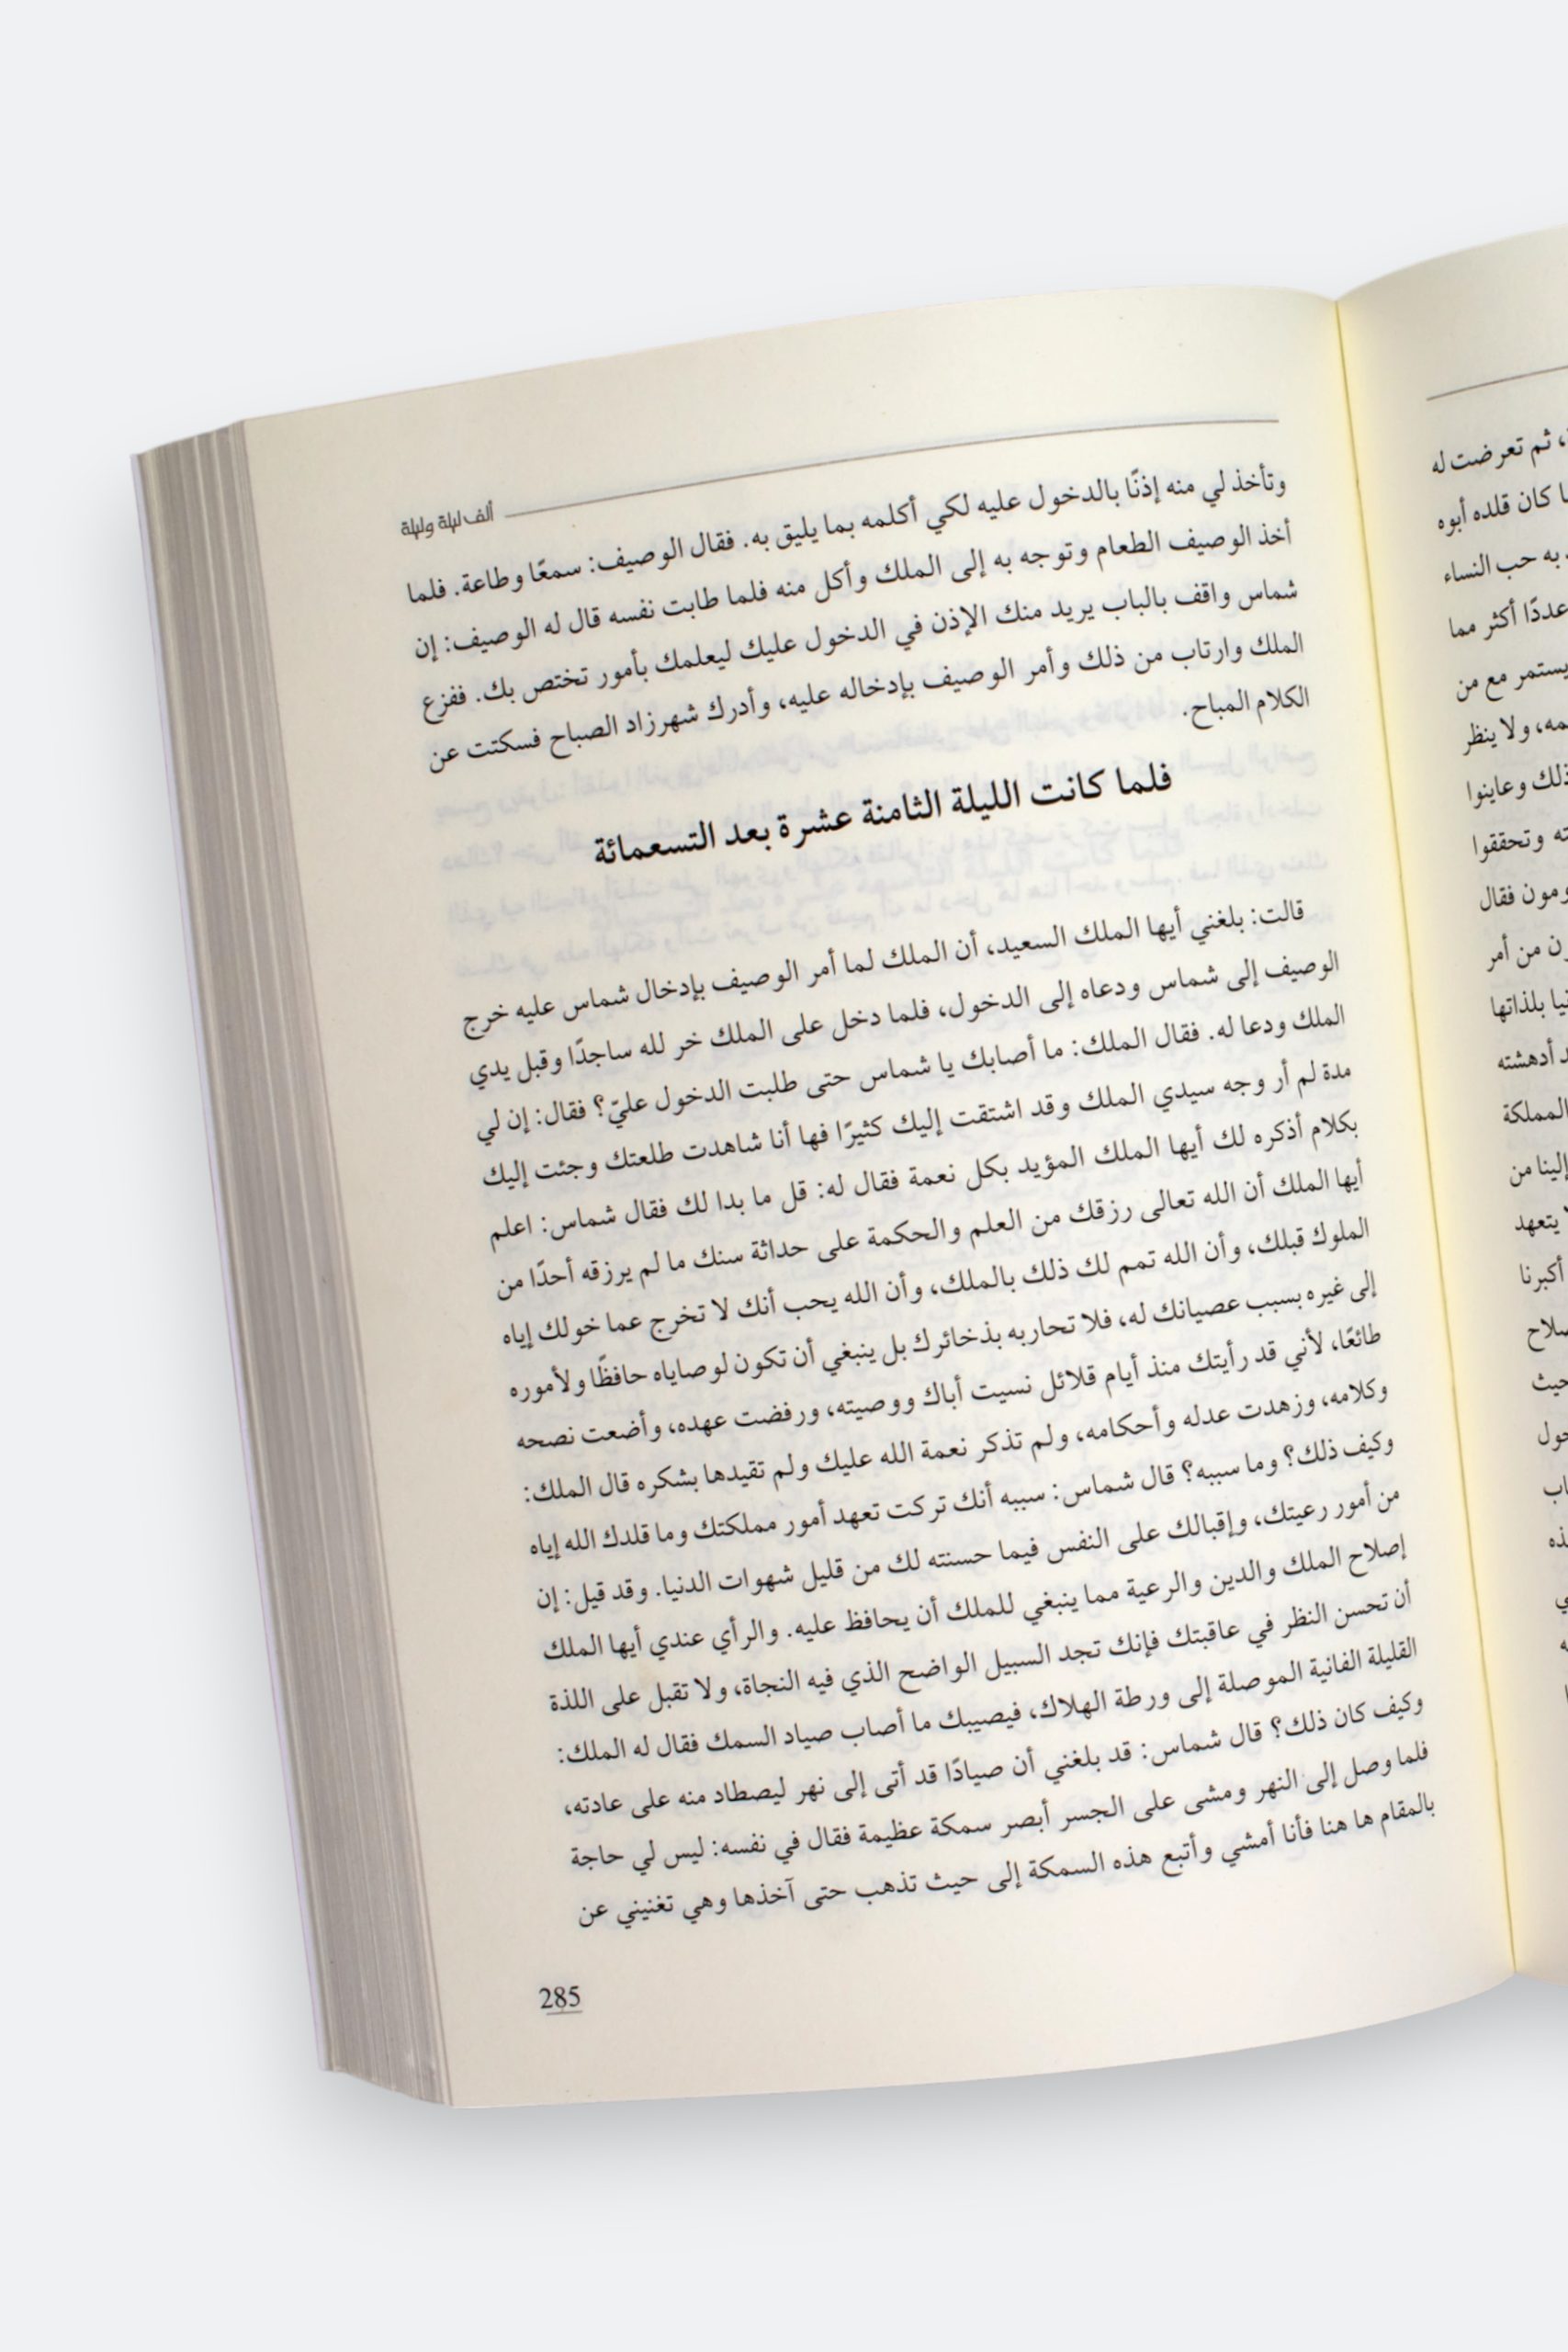 ثم تعرضت له
كان قلده أبوه
به حب النساء
عددًا أكثر مما
يستمر مع من
ولا ينظر
وعاينوا
وتحققوا
فقال
من أمر
بلذاتها
أدهشته
المملكة
إلينا من
يتعهد
أكبرنا
ألف ليلة وليلة
وتأخذ لي منه إذنًا بالدخول عليه لكي أكلمه بما يليق به. فقال الوصيف: سمعًا وطاعة. فلما
أخذ الوصيف الطعام وتوجه به إلى الملك وأكل منه فلما طابت نفسه قال له الوصيف: إن
شماس واقف بالباب يريد منك الإذن في الدخول عليك ليعلمك بأمور تختص بك. ففزع
الملك وارتاب من ذلك وأمر الوصيف بإدخاله عليه، وأدرك شهرزاد الصباح فسكتت عن
الكلام المباح.
فلما كانت الليلة الثامنة عشرة بعد التسعمائة
قالت: بلغني أيها الملك السعيد، أن الملك لما أمر الوصيف بإدخال شماس عليه خرج
الوصيف إلى شماس ودعاه إلى الدخول، فلما دخل على الملك خر لله ساجدًا وقبل يدي
الملك ودعا له. فقال الملك: ما أصابك يا شماس حتى طلبت الدخول عليّ؟ فقال: إن لي
مدة لم أر وجه سيدي الملك وقد اشتقت إليك كثيرًا فها أنا شاهدت طلعتك وجئت إليك
بكلام أذكره لك أيها الملك المؤيد بكل نعمة فقال له: قل ما بدا لك فقال شماس: اعلم
أيها الملك أن الله تعالى رزقك من العلم والحكمة على حداثة سنك ما لم يرزقه أحدًا من
الملوك قبلك، وأن الله تمم لك ذلك بالملك، وأن الله يحب أنك لا تخرج عما خولك إياه
إلى غيره بسبب عصيانك له، فلا تحاربه بذخائرك بل ينبغي أن تكون لوصاياه حافظًا ولأموره
طائعًا، لأني قد رأيتك منذ أيام قلائل نسيت أباك ووصيته، ورفضت عهده، وأضعت نصحه
وكلامه، وزهدت عدله وأحكامه، ولم تذكر نعمة الله عليك ولم تقيدها بشكره قال الملك:
وكيف ذلك؟ وما سببه؟ قال شماس: سببه أنك تركت تعهد أمور مملكتك وما قلدك الله إياه
من أمور رعيتك، وإقبالك على النفس فيما حسنته لك من قليل شهوات الدنيا. وقد قيل: إن
إصلاح الملك والدين والرعية مما ينبغي للملك أن يحافظ عليه. والرأي عندي أيها الملك
أن تحسن النظر في عاقبتك فإنك تجد السبيل الواضح الذي فيه النجاة، ولا تقبل على اللذة
القليلة الفانية الموصلة إلى ورطة الهلاك، فيصيبك ما أصاب صياد السمك فقال له الملك:
وكيف كان ذلك؟ قال شماس: قد بلغني أن صيادًا قد أتى إلى نهر ليصطاد منه على عادته،
فلما وصل إلى النهر ومشى على الجسر أبصر سمكة عظيمة فقال في نفسه: ليس لي حاجة
بالمقام ها هنا فأنا أمشي وأتبع هذه السمكة إلى حيث تذهب حتى آخذها وهي تغنيني عن
285